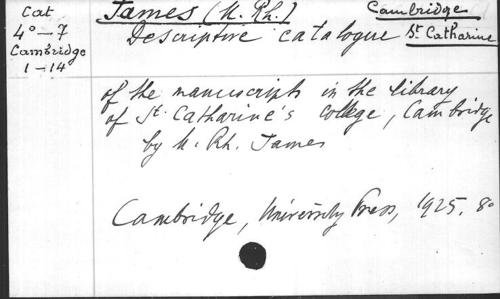 Cat
4° — 7
Cambridge
1 — 14
James (M. Rh.)
Cambridge
St Catharine
Descriptive catalogue
of the manuscripts in the library
of St. Catharine's college, Cambridge
by M. Rh. James
Cambridge, University Press, 1925. 8°